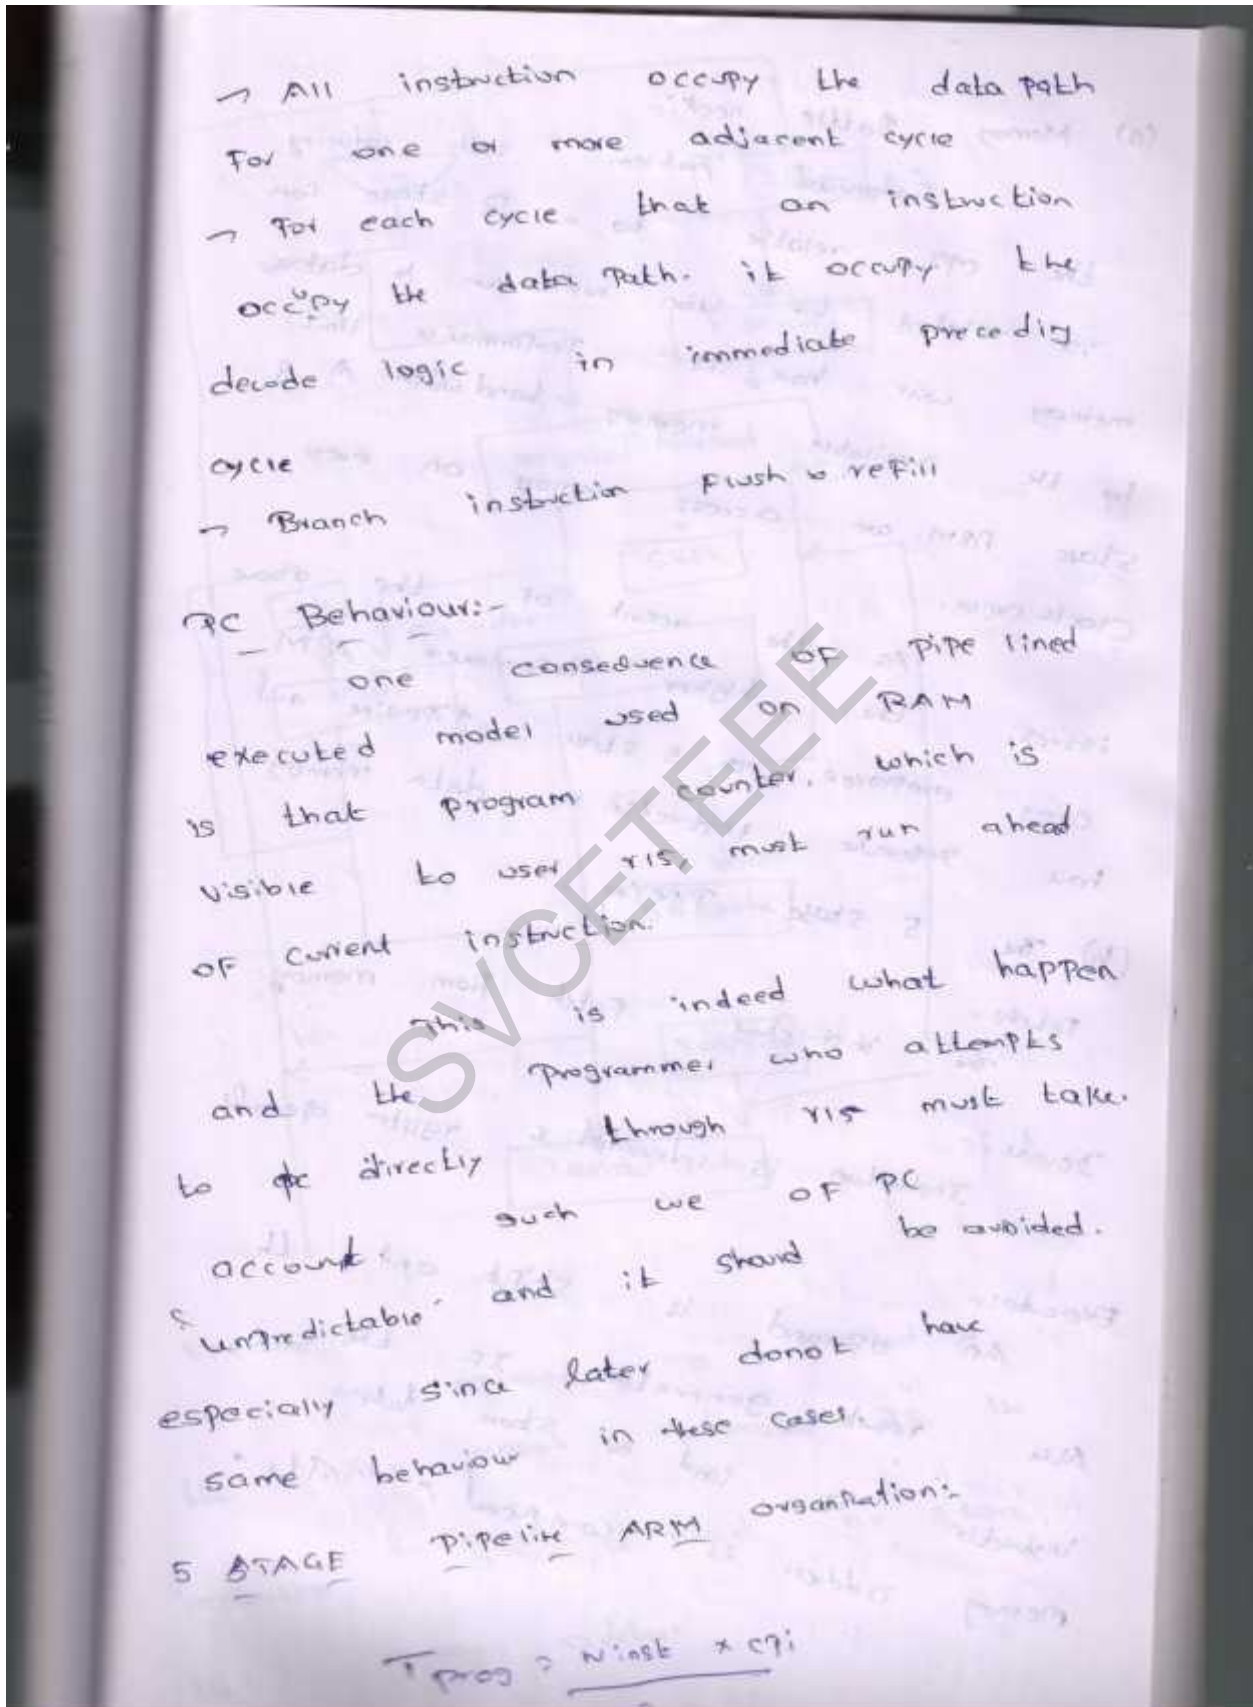 → All instruction occupy the data path
For one or more adjacent cycle
→ For each cycle that an instruction
occupy the data path. it occupy the
decode logic in immediate precedig
cycle
→ Branch instruction flush & refill
PC Behaviour:-
one consequence of pipe lined
executed model used on RAM
is that program counter. which is
visible to user r15, must run ahead
of current instruction.
This is indeed what happen
and the programmer who attempts
to directly through r15 must take.
account such we of PC
"unpredictable" and it should be avoided.
especially since later donot have
same behaviour in these cases.
5 STAGE Pipeline ARM organisation:-
Tprog = Ninst x CPi
SVCETEEE